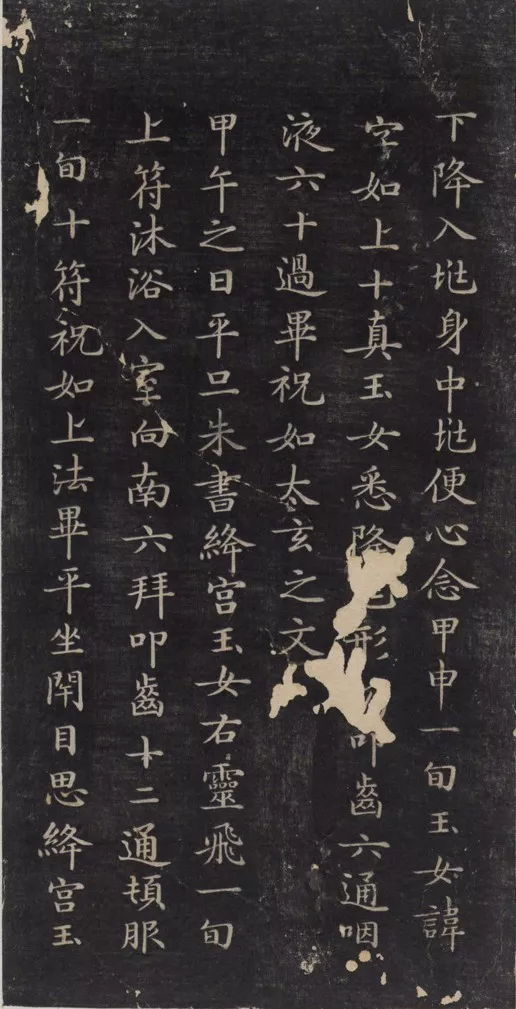 下降入兆身中兆便心念甲申一旬玉女諱
字如上十真玉女悉降己形叩齒六通咽
液六十過畢祝如太玄之文
甲午之日平旦朱書絳宮玉女右靈飛一旬
上符沐浴入室向南六拜叩齒十二通頓服
一旬十符祝如上法畢平坐閇目思絳宮玉